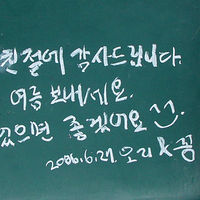 친절에 감사드립니다.
여름 보내세요.
으면 좋겠어요
2006.6.29. 오리 & 꿈